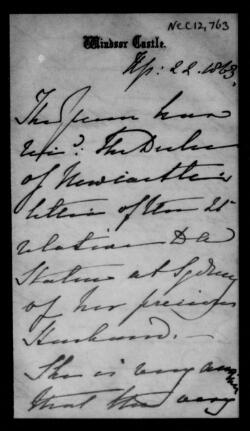 NeC12,763
Windsor Castle.
Ap: 22. 1863.
The Queen has
recd: The Duke
of Newcastle's
letter of the 21
relative to a
Statue at Sydney
of her precious
Husband. —
She is very anxious
that the very